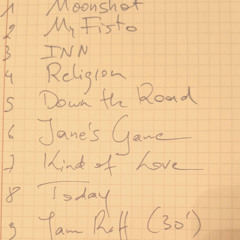 1 Moonshot
2 My Fisto
3 INN
4 Religion
5 Down the Road
6 Jane's Game
7 Kind of Love
8 Today
9 Jam Roff (30')